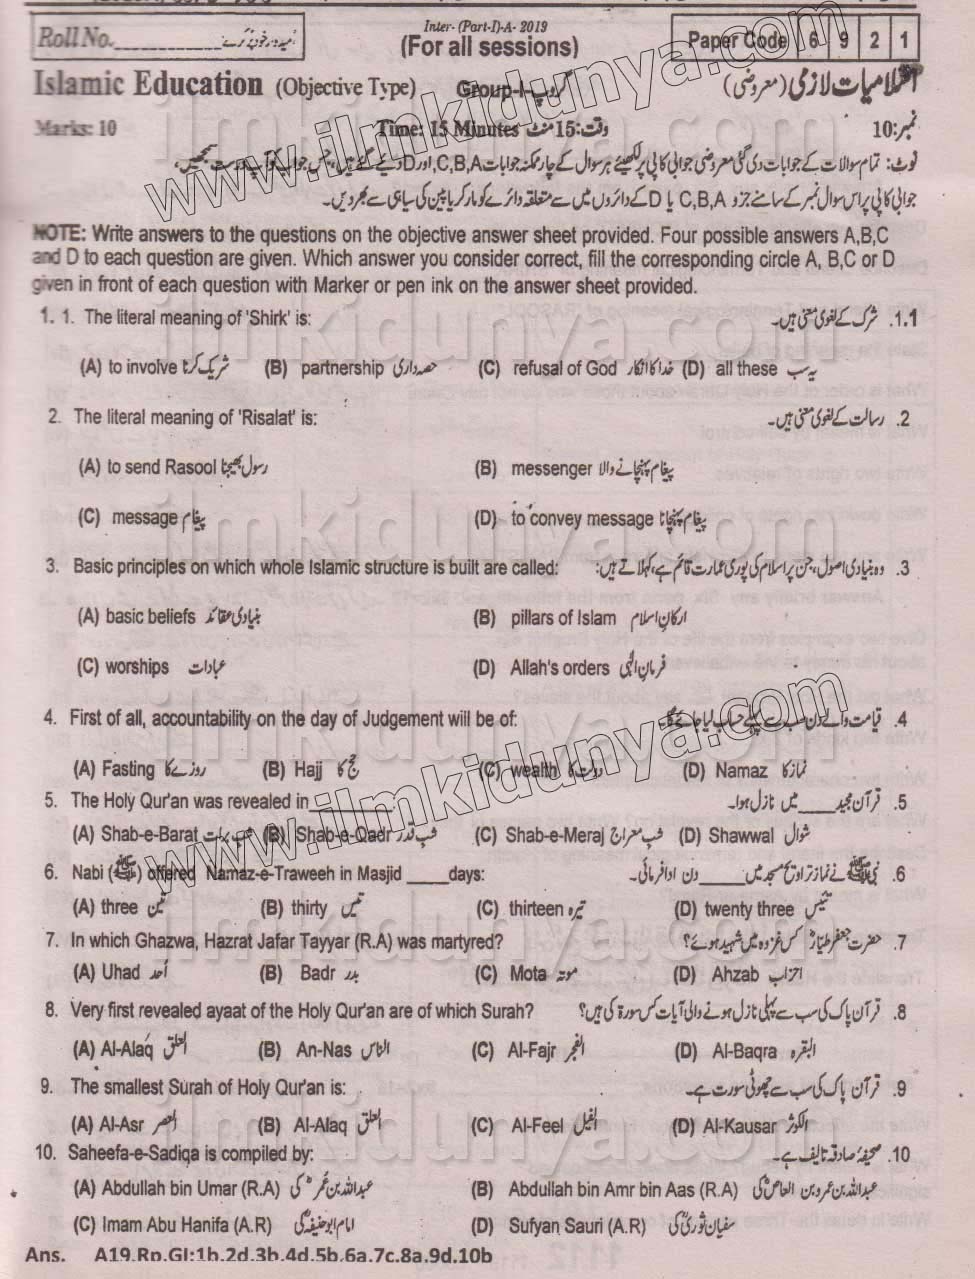 Roll No.____________ امیدوار خود پُر کرے
Inter- (Part-I)-A- 2019
(For all sessions)
Paper Code 6 9 2 1
Islamic Education (Objective Type) Group-I-گروپ اسلامیات لازمی (معروضی)
Marks: 10 Time: 15 Minutes وقت:15منٹ نمبر:10
نوٹ: تمام سوالات کے جوابات دی گئی معروضی جوابی کاپی پر لکھیئے ہر سوال کے چار ممکنہ جوابات C,B,A اور D دیئے گئے ہیں، جس جواب کو آپ درست سمجھیں،
جوابی کاپی پر اس سوال نمبر کے سامنے جزو C,B,A یا D کے دائروں میں سے متعلقہ دائرے کو مارکر یا پین کی سیاہی سے بھر دیں۔
NOTE: Write answers to the questions on the objective answer sheet provided. Four possible answers A,B,C
and D to each question are given. Which answer you consider correct, fill the corresponding circle A, B,C or D
given in front of each question with Marker or pen ink on the answer sheet provided.
1. 1. The literal meaning of 'Shirk' is: 1.1. شرک کے لغوی معنی ہیں۔
(A) to involve شریک کرنا (B) partnership حصہ داری (C) refusal of God خدا کا انکار (D) all these یہ سب
2. The literal meaning of 'Risalat' is: 2. رسالت کے لغوی معنی ہیں۔
(A) to send Rasool رسول بھیجنا (B) messenger پیغام پہنچانے والا
(C) message پیغام (D) to convey message پیغام پہنچانا
3. Basic principles on which whole Islamic structure is built are called: 3. وہ بنیادی اصول، جن پر اسلام کی پوری عمارت قائم ہے، کہلاتے ہیں:
(A) basic beliefs بنیادی عقائد (B) pillars of Islam ارکانِ اسلام
(C) worships عبادات (D) Allah's orders فرمانِ الٰہی
4. First of all, accountability on the day of Judgement will be of: 4. قیامت والے دن سب سے پہلے حساب لیا جائے گا۔
(A) Fasting روزے کا (B) Hajj حج کا (C) wealth دولت کا (D) Namaz نماز کا
5. The Holy Qur'an was revealed in ____________ 5. قرآن مجید ____ میں نازل ہوا۔
(A) Shab-e-Barat شبِ برات (B) Shab-e-Qadr شبِ قدر (C) Shab-e-Meraj شبِ معراج (D) Shawwal شوال
6. Nabi (ﷺ) offered Namaz-e-Traweeh in Masjid _____days: 6. نبی ﷺ نے نماز تراویح مسجد میں _____ دن ادا فرمائی۔
(A) three تین (B) thirty تیس (C) thirteen تیرہ (D) twenty three تئیس
7. In which Ghazwa, Hazrat Jafar Tayyar (R.A) was martyred? 7. حضرت جعفر طیارؓ کس غزوہ میں شہید ہوئے؟
(A) Uhad اُحد (B) Badr بدر (C) Mota موتہ (D) Ahzab احزاب
8. Very first revealed ayaat of the Holy Qur'an are of which Surah? 8. قرآن پاک کی سب سے پہلی نازل ہونے والی آیات کس سورۃ کی ہیں؟
(A) Al-Alaq العلق (B) An-Nas الناس (C) Al-Fajr الفجر (D) Al-Baqra البقرہ
9. The smallest Surah of Holy Qur'an is: 9. قرآن پاک کی سب سے چھوٹی سورت ہے۔
(A) Al-Asr العصر (B) Al-Alaq العلق (C) Al-Feel الفیل (D) Al-Kausar الکوثر
10. Saheefa-e-Sadiqa is compiled by: 10. صحیفہ صادقہ تالیف ہے۔
(A) Abdullah bin Umar (R.A) عبداللہ بن عمرؓ کی (B) Abdullah bin Amr bin Aas (R.A) عبداللہ بن عمرو بن العاصؓ کی
(C) Imam Abu Hanifa (A.R) امام ابو حنیفہؒ کی (D) Sufyan Sauri (A.R) سفیان ثوریؒ کی
Ans. A19.Rp.GI:1b.2d.3b.4d.5b.6a.7c.8a.9d.10b
www.ilmkidunya.com
www.ilmkidunya.com
ilmkidunya.com
ilmkidunya.com
ilmkidunya.com
ilmkidunya.com
ilmkidunya.com
ilmkidunya.com